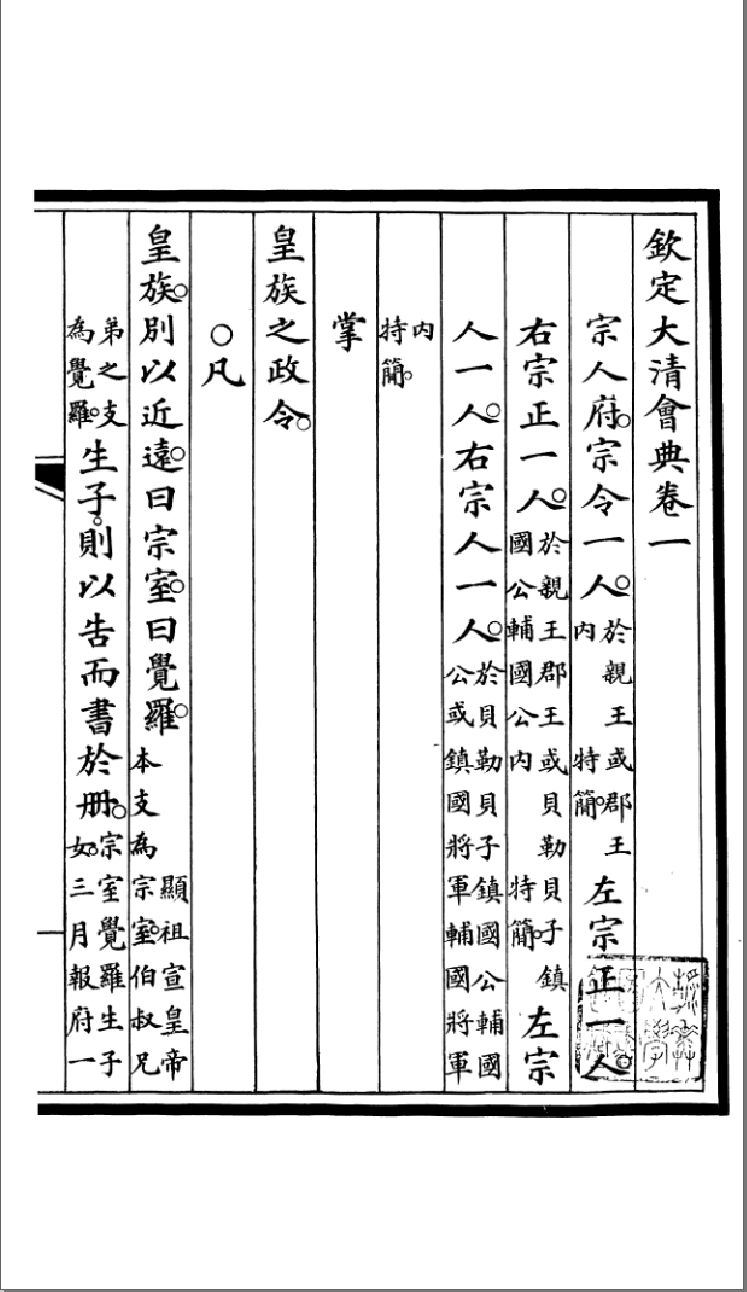 欽定大清會典卷一
宗人府。宗令一人。於親王或郡王內特簡。左宗正一人。
右宗正一人。於親王郡王或貝勒貝子鎮國公輔國公內特簡。左宗
人一人。右宗人一人。於貝勒貝子鎮國公輔國公或鎮國將軍輔國將軍
內特簡。
掌
皇族之政令。
○凡
皇族。別以近遠。曰宗室。曰覺羅。顯祖宣皇帝本支為宗室。伯叔兄
弟之支為覺羅。生子。則以告而書於册。宗室覺羅生子女。三月報府一